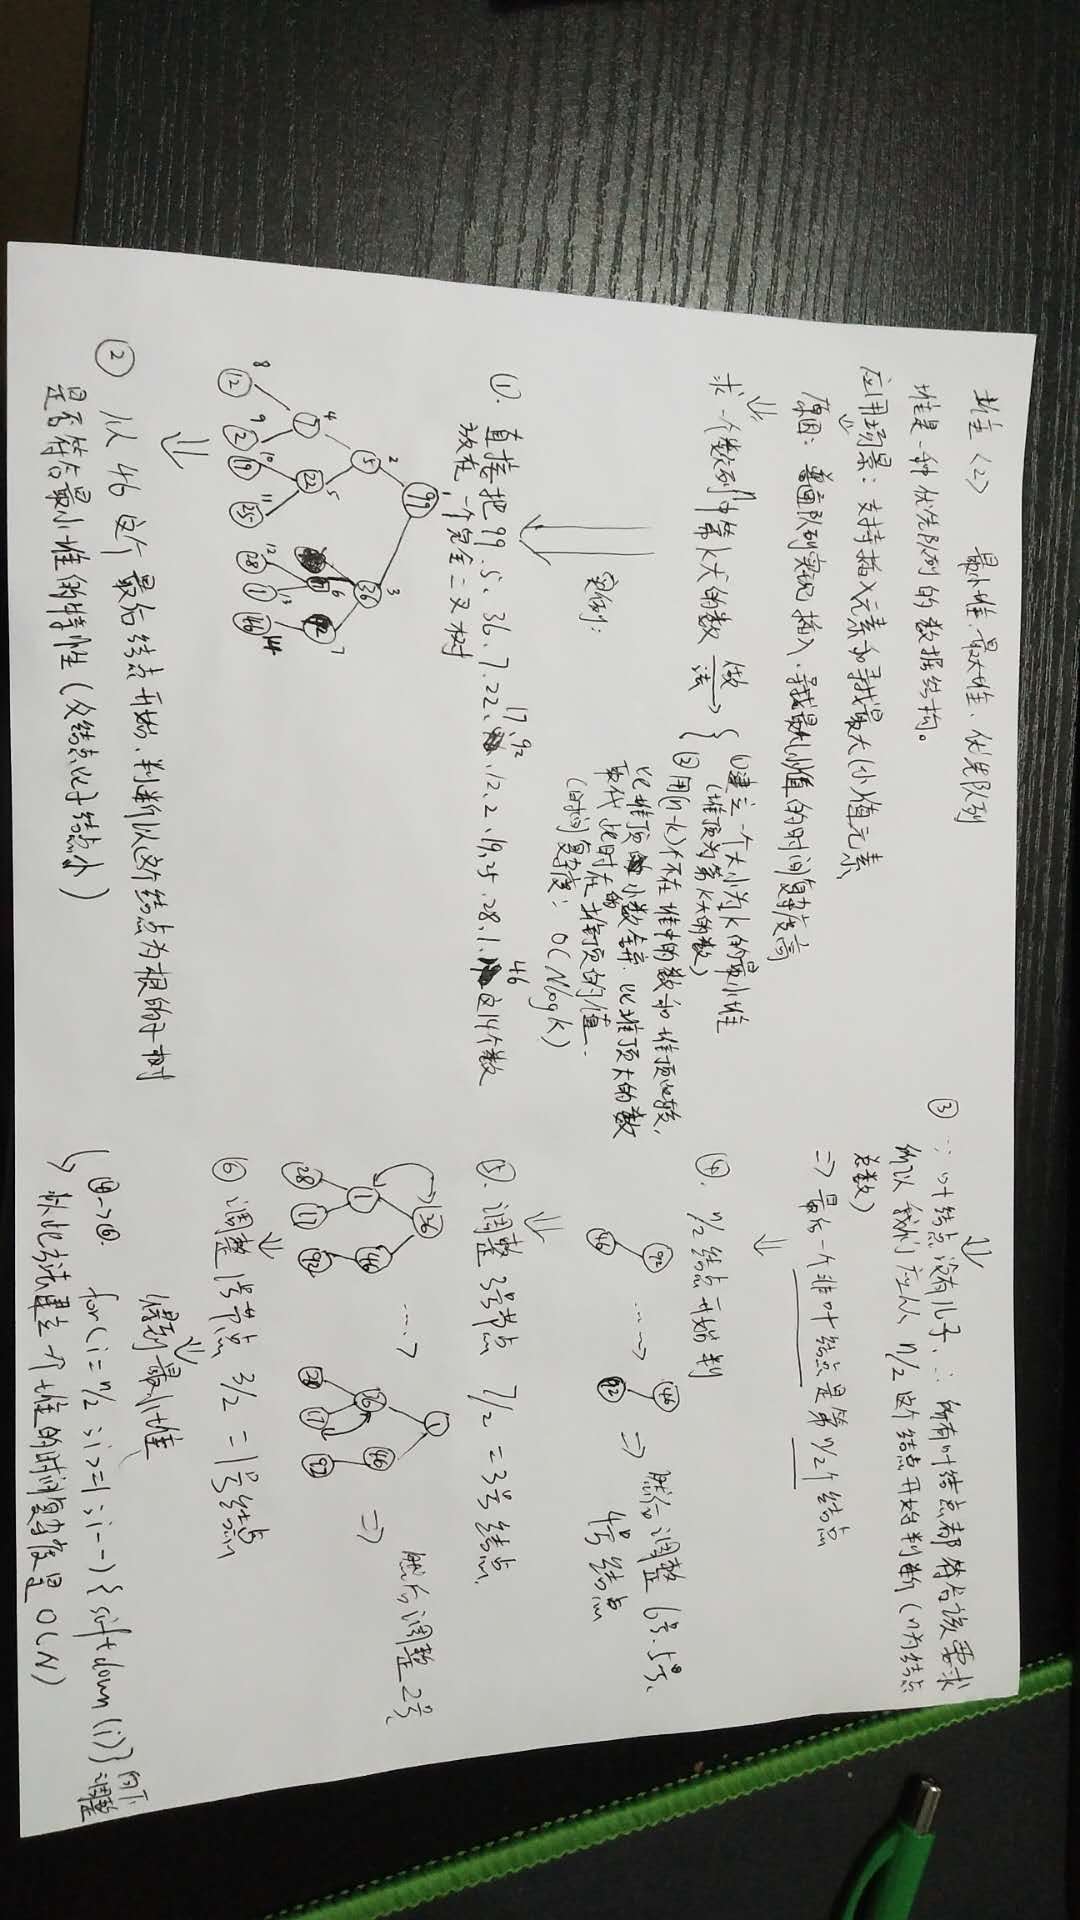 堆<2> 最小堆、最大堆、优先队列
堆是一种优先队列的数据结构。
应用场景：支持插入元素和寻找最大(小)值元素
原因：普通队列实现插入、寻找最大(小)值的时间复杂度高
求一个数列n中第k大的数 做法
①建立一个大小为K的最小堆
(堆顶为第K大的数)
②用(n-k)个不在堆中的数和堆顶比较,
比堆顶小数舍弃.比堆顶大的数
取代此时在的堆顶的值.
(时间复杂度：O(NlogK)
实例：
①. 直接把99、5、36、7、22、17、92、12、2、19、25、28、1、46这14个数
放在一个完全二叉树
1
99
2 3
5 36
4 5 6 7
7 22 17 92
8 9 10 11 12 13 14
12 2 19 25 28 1 46
② 从46这个最后结点开始,判断以这个结点为根的子树
是否符合最小堆的特性(父结点比子结点小)
③ ∵叶结点没有儿子,∴所有叶结点都符合该要求
所以我们应从n/2这个结点开始判断(n为结点
总数)
⇒最后一个非叶结点是第n/2个结点
④. n/2结点开始判
92 ....→ 46 ⇒ 然后调整6号、5号、
46 92 4号结点
⑤. 调整3号节点 7/2 =3号结点.
36 ....→ 1 ⇒ 然后调整2号
1 46 36 46
28 17 92 28 17 92
⑥ 调整1号节点 3/2 =1号结点
得到最小堆
④→⑥. for(i=n/2;i>=1;i--){siftdown(i)} 向下调整
以此方法建立一个堆的时间复杂度是O(N)